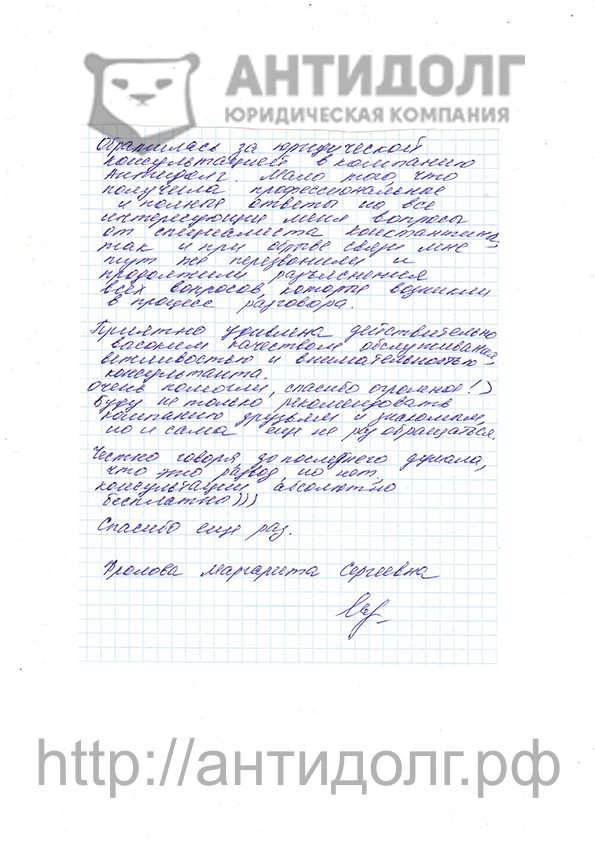 АНТИДОЛГ
ЮРИДИЧЕСКАЯ КОМПАНИЯ
Обратилась за юридической
консультацией в компанию
Антидолг. Мало того что
получила профессиональные
и полные ответы на все
интересующие меня вопросы
от специалиста Константина,
так и при обрыве связи мне
тут же перезвонили и
продолжили разъяснения
всех вопросов, которые возникли
в процессе разговора.
Приятно удивлена действительно
высоким качеством обслуживания,
вежливостью и внимательностью
консультанта.
Очень помогли, спасибо огромное!)
Буду не только рекомендовать
компанию друзьям и знакомым,
но и сама еще не раз обращаться.
Честно говоря до последнего думала,
что это развод но нет,
консультации абсолютно
бесплатно)))
Спасибо еще раз.
Фролова Маргарита Сергеевна
http://антидолг.рф